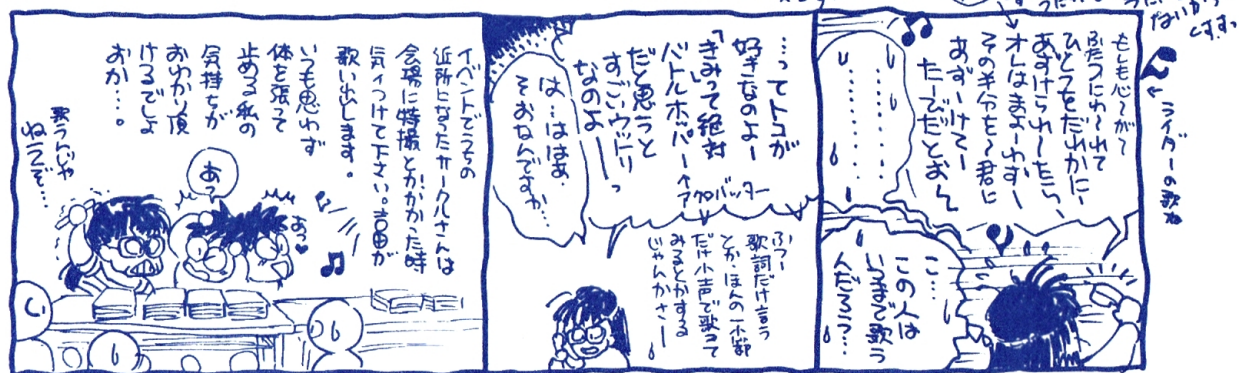 ないかっ
くすすっ
ライダーの歌ね
もしも心〜が〜
ふたつにわ〜れて
ひとつをだれかに〜
あずけられ〜たら、
オレはまよーわずー
その半分を〜君に
あずーけてー
たーでだとお〜
…………
…………
こ…
この人は
いつまで歌う
んだろう…
…ってトコが
好きなのよー
「きみって絶対
バトルホッパー
だと思うと
すごいウットリ
なのよーーっ
アクロバッター
は…ははあ、
そおなんですか…
ふつー
歌詞だけ言う
とか、ほんの一部
だけ小声で歌って
みるとかする
じゃんかさー
イベントでうちの
近所になったサークルさんは
会場に特撮とかかかった時
気ィつけて下さい。吉田が
歌い出します。
いつも思わず
体を張って
止める私の
気持ちが
おわかり頂
けるでしょ
おか…。
あっ
あっ♥
歌うんじゃ
ねえぞ…